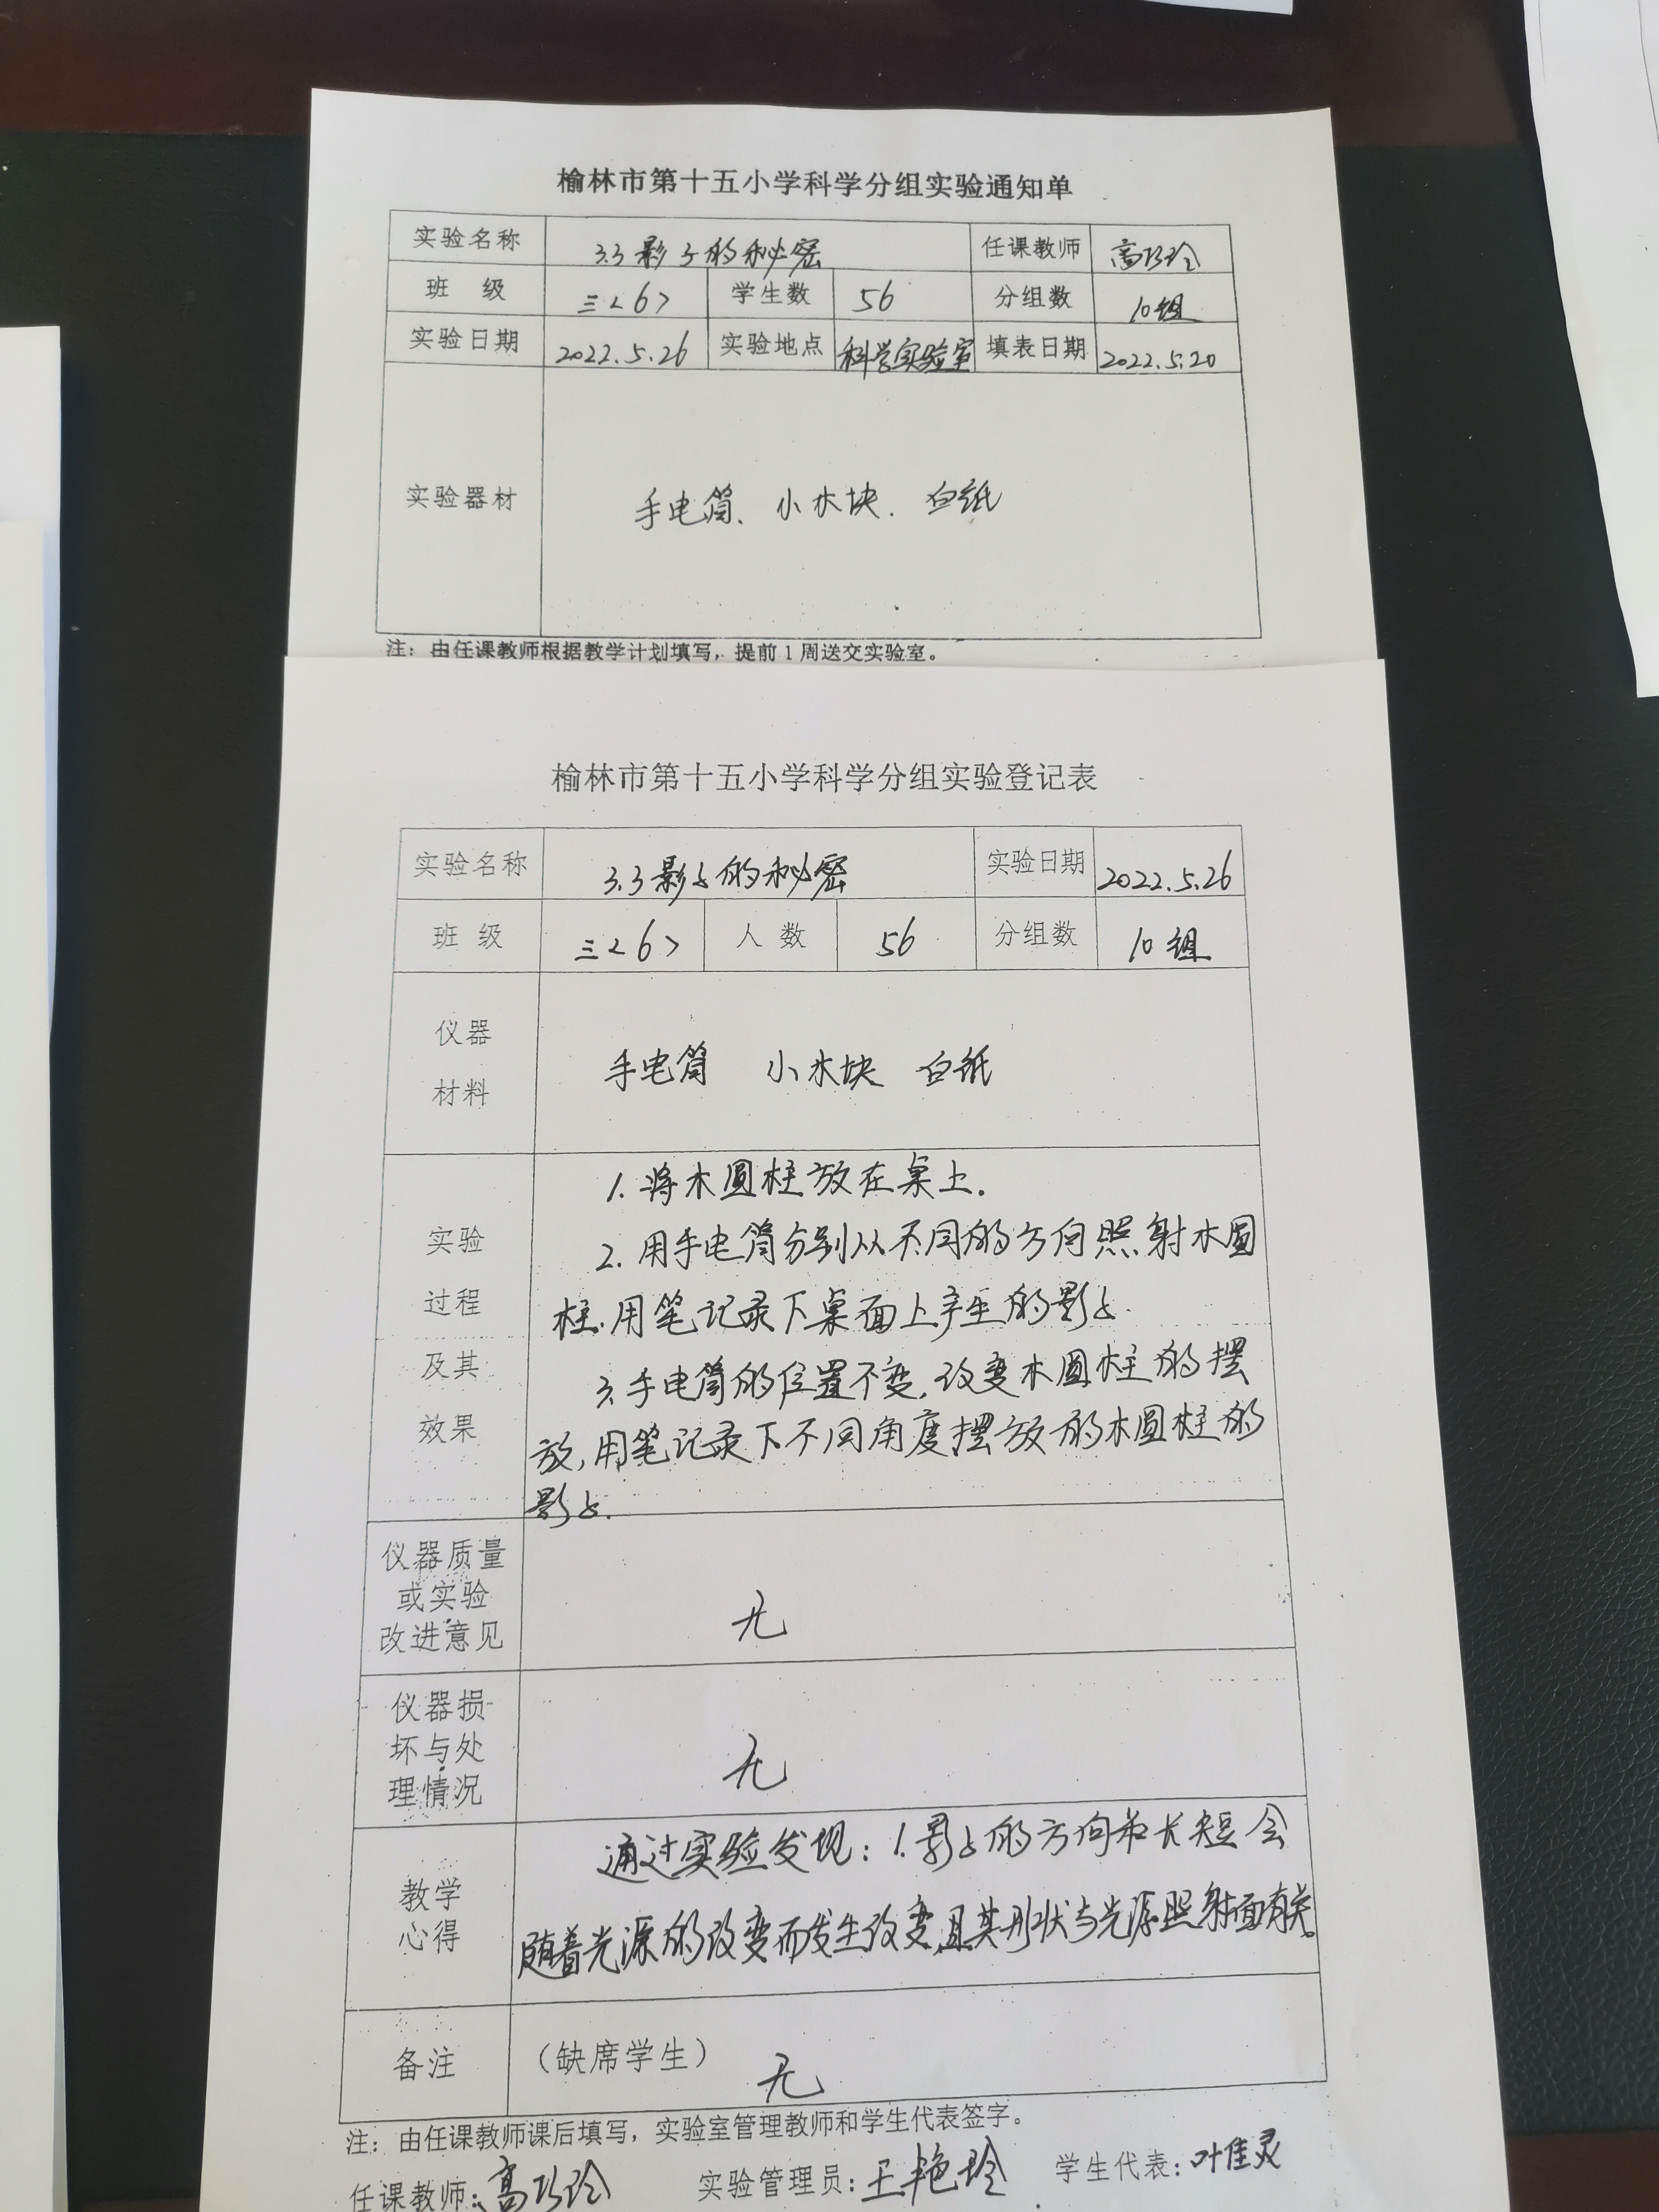 榆林市第十五小学科学分组实验通知单
实验名称 3.3影子的秘密 任课教师 高巧玲
班 级 三<6> 学生数 56 分组数 10组
实验日期 2022.5.26 实验地点 科学实验室 填表日期 2022.5.20
实验器材 手电筒、小木块、白纸
注：由任课教师根据教学计划填写，提前1周送交实验室。
榆林市第十五小学科学分组实验登记表
实验名称 3.3影子的秘密 实验日期 2022.5.26
班 级 三<6> 人 数 56 分组数 10组
仪器
材料
手电筒 小木块 白纸
实验
过程
及其
效果
1.将木圆柱放在桌上.
2.用手电筒分别从不同的方向照射木圆
柱.用笔记录下桌面上产生的影子.
3.手电筒的位置不变,改变木圆柱的摆
放,用笔记录下不同角度摆放的木圆柱的
影子.
仪器质量
或实验
改进意见
无
仪器损
坏与处
理情况
无
教学
心得
通过实验发现：1.影子的方向和长短会
随着光源的改变而发生改变,且其形状与光源照射面有关。
备注 （缺席学生） 无
注：由任课教师课后填写，实验室管理教师和学生代表签字。
任课教师：高巧玲 实验管理员：王艳玲 学生代表：叶佳灵